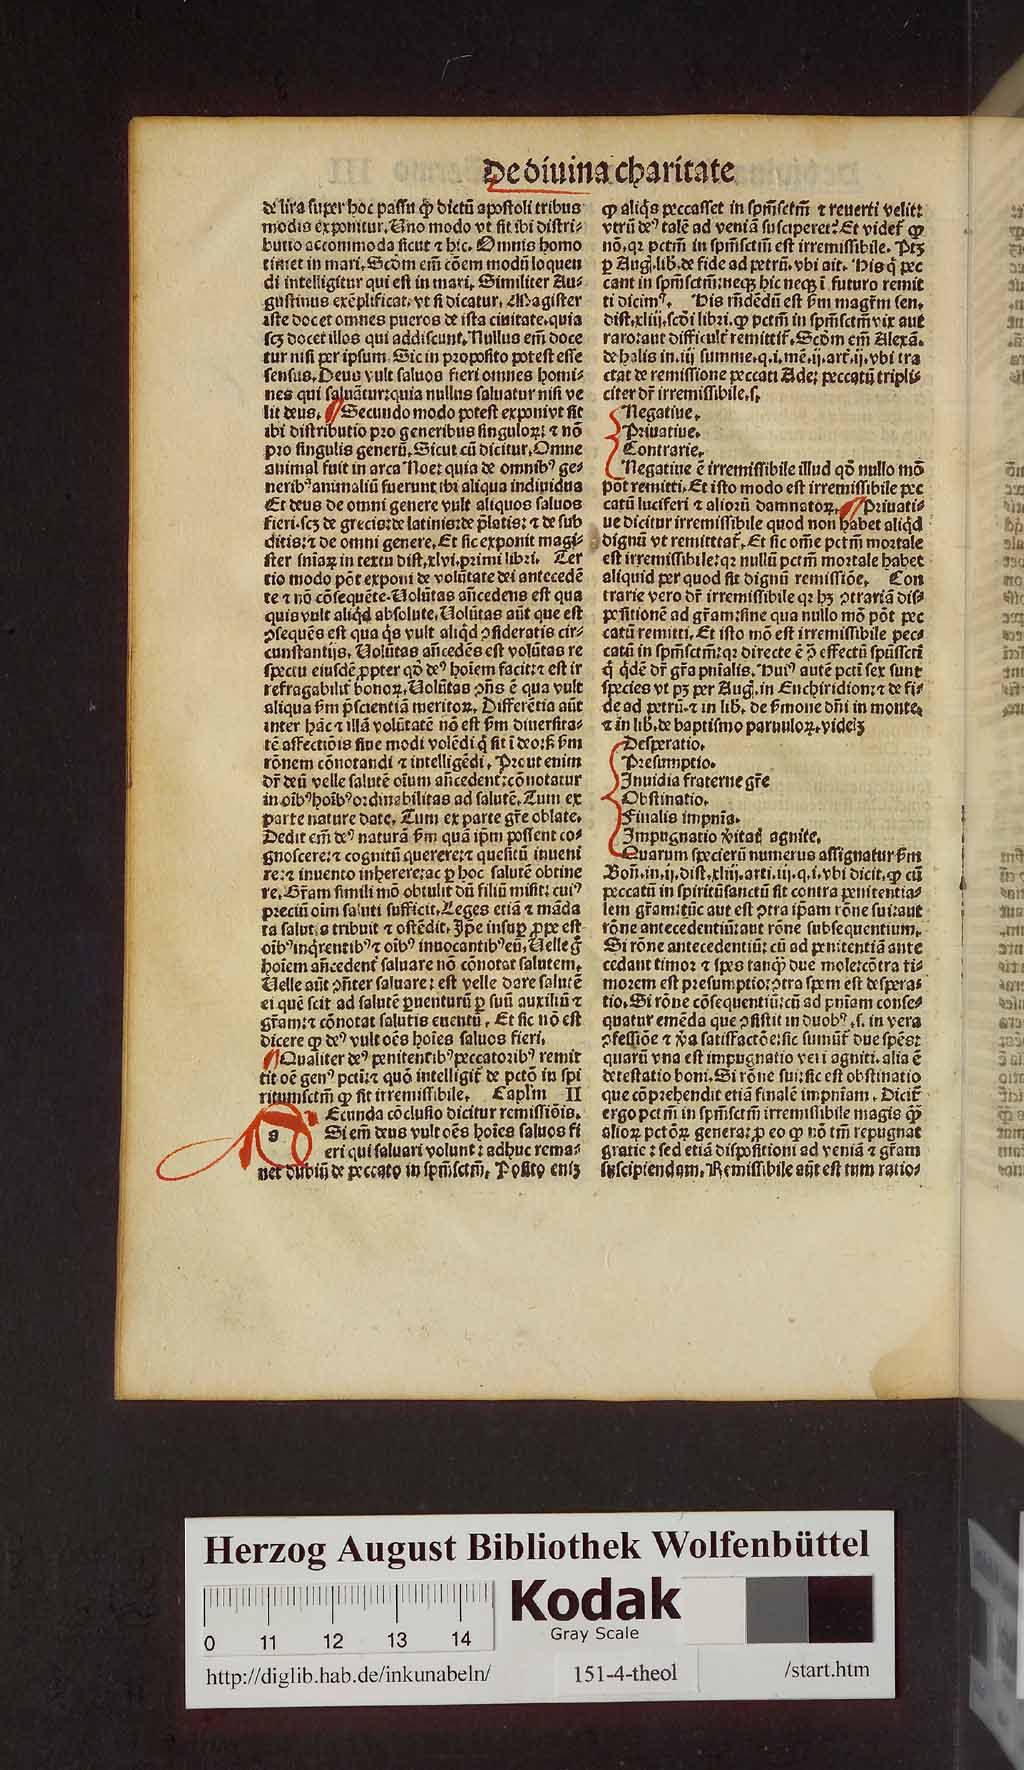 De diuina charitate
de lira super hoc passu ꝙ dictū apostoli tribus
modis exponitur. Uno modo vt sit ibi distri-
butio accommoda sicut ⁊ hic. Omnis homo
timet in mari. Scḋm em̄ cōem modū loquen
di intelligitur qui est in mari. Similiter Au-
gustinus exēplificat. vt si dicatur. Magister
iste docet omnes pueros de ista ciuitate. quia
scꝫ docet illos qui addiscunt. Nullus em̄ doce
tur nisi per ipsum. Sic in proposito potest esse
sensus. Deus vult saluos fieri omnes homi-
nes qui saluātur: quia nullus saluatur nisi ve
lit deus. Secundo modo potest exponi vt sit
ibi distributio pro generibus singuloꝝ: ⁊ nō
pro singulis generū. Sicut cū dicitur. Omne
animal fuit in arca Noe: quia de omnibꝰ ge-
neribꝰ animaliū fuerunt ibi aliqua indiuidua
Et deus de omni genere vult aliquos saluos
fieri. scꝫ de grecis: de latinis: de p̄latis: ⁊ de sub
ditis: ⁊ de omni genere. Et sic exponit magi-
ster sn̄iaꝝ in textu dist. xlvi. primi libri. Ter
tio modo pōt exponi de volūtate dei antecedē
te ⁊ nō cōsequēte. Uolūtas an̄cedens est qua
quis vult aliqḋ absolute. Uolūtas aūt que est
ꝯsequēs est qua q̇s vult aliqḋ ꝯsideratis cir-
cunstantijs. Uolūtas an̄cedēs est volūtas re
spectu eiusdē ꝓpter qḋ deꝰ hoīem facit: ⁊ est ir
refragabilit̄ bonoꝝ. Uolūtas ꝯn̄s ē qua vult
aliqua ẜm p̄scientiā meritoꝝ. Differētia aūt
inter hāc ⁊ illā volūtatē nō est ẜm diuersita-
tē affectiōis siue modi volēdi q̇ sit ī deo: ẜ ẜm
rōnem cōnotandi ⁊ intelligēdi. Prout enim
dr̄ deū velle salutē oīum an̄cedent̄: cōnotatur
in oībꝰ hoībꝰ ordinabilitas ad salutē. Tum ex
parte nature date. Tum ex parte gr̄e oblate.
Dedit em̄ deꝰ naturā ẜm quā ip̄m possent co-
gnoscere: ⁊ cognitū querere: ⁊ quesitū inueni
re: ⁊ inuento inherere: ac ꝑ hoc salutē obtine
re. Gr̄am simili mō obtulit dū filiū misit: cuiꝰ
preciū oīm saluti sufficit. Leges etiā ⁊ māda
ta salutis tribuit ⁊ ostēdit. Ip̄e insuꝑ ꝓpe est
oībꝰ inq̇rentibꝰ ⁊ oībꝰ inuocantibꝰ eū. Uelle g̊
hoīem an̄cedent̄ saluare nō cōnotat salutem.
Uelle aūt ꝯn̄ter saluare: est velle dare salutē
ei quē scit ad salutē ꝑuenturū ꝑ suū auxiliū ⁊
gr̄am: ⁊ cōnotat salutis euentū. Et sic nō est
dicere ꝙ deꝰ vult oēs hoīes saluos fieri.
Qualiter deꝰ penitentibꝰ peccatoribꝰ remit
tit oē genꝰ pcti: ⁊ quō intelligit̄ de pctō in spi
ritumsctm̄ ꝙ sit irremissibile. Caplm̄ II
s Ecunda cōclusio dicitur remissiōis.
Si em̄ deus vult oēs hoīes saluos fi
eri qui saluari volunt: adhuc rema-
net dubiū de peccato in spm̄sctm̄. Posito eniꝫ
ꝙ aliq̇s peccasset in spm̄sctm̄ ⁊ reuerti velit:
vtrū deꝰ talē ad veniā susciperet: Et videt̄ ꝙ
nō. qꝛ pctm̄ in spm̄sctm̄ est irremissibile. Ptꝫ
ꝑ Aug̓. lib. de fide ad petrū. vbi ait. His q̇ pec
cant in spm̄sctm̄: neqꝫ hic neqꝫ ī futuro remit
ti dicimꝰ. His r̄ndēdū est ẜm magr̄m sen.
dist. xliij. scḋi libri. ꝙ pctm̄ in spm̄sctm̄ vix aut
raro: aut difficult̄ remittit̄. Scḋm em̄ Alexā.
de halis in. iij summe. q. i. mē. ij. art̄. ij. vbi tra
ctat de remissione peccati Ade: peccatū tripli-
citer dr̄ irremissibile. s.
Negatiue.
Priuatiue.
Contrarie.
Negatiue ē irremissibile illud qḋ nullo mō
pōt remitti. Et isto modo est irremissibile pec
catū luciferi ⁊ alioru̅ damnatoꝝ. Priuati-
ue dicitur irremissibile quod non habet aliqḋ
dignū vt remittat̄. Et sic om̄e pctm̄ mortale
est irremissibile: qꝛ nullū pctm̄ mortale habet
aliquid per quod sit dignū remissiōe. Con
trarie vero dr̄ irremissibile qꝛ hꝫ ꝯtrariā dis-
positionē ad gr̄am: sine qua nullo mō pōt pec
catū remitti. Et isto mō est irremissibile pec-
catū in spm̄sctm̄: qꝛ directe ē ꝯ̄ effectū spūsscti
q̇ q̇dē dr̄ gr̄a pn̄ialis. Huiꝰ autē pcti sex sunt
species vt pꝫ per Aug̓. in Enchiridion: ⁊ de fi-
de ad petrū. ⁊ in lib. de ẜmone dn̄i in monte.
⁊ in lib. de baptismo paruuloꝝ. videlꝫ
Desperatio.
Presumptio.
Inuidia fraterne gr̄e
Obstinatio.
Finalis impn̄ia.
Impugnatio v̓itat̄ agnite.
Quarum specierū numerus assignatur ẜm
Bon̄. in. ij. dist. xliij. arti. iij. q. i. vbi dicit. ꝙ cū
peccatū in spiritūsanctū sit contra penitentia-
lem gr̄am: tūc aut est ꝯtra ip̄am rōne sui: aut
rōne antecedentiū: aut rōne subsequentium.
Si rōne antecedentiū: cū ad penitentiā ante
cedant timor ⁊ spes tanꝙ̄ due mole: cōtra ti-
morem est presumptio: ꝯtra spem est despera-
tio. Si rōne cōsequentiū: cū ad pn̄iam conse-
quatur emēda que ꝯsistit in duobꝰ. s. in vera
ꝯfessiōe ⁊ v̓a satisfactōe: sic sumūt̄ due spēs:
quarū vna est impugnatio veri agniti. alia ē
detestatio boni. Si rōne sui: sic est obstinatio
que cōprehendit etiā finalē impn̄iam. Dicit̄
ergo pctm̄ in spm̄sctm̄ irremissibile magis ꝙ̄
alioꝝ pctōꝝ genera: ꝓ eo ꝙ nō tm̄ repugnat
gratie: sed etiā dispositioni ad veniā ⁊ gr̄am
suscipiendam. Remissibile aūt est tum ratio-
Herzog August Bibliothek Wolfenbüttel
0 11 12 13 14
Kodak
Gray Scale
http://diglib.hab.de/inkunabeln/ 151-4-theol /start.htm